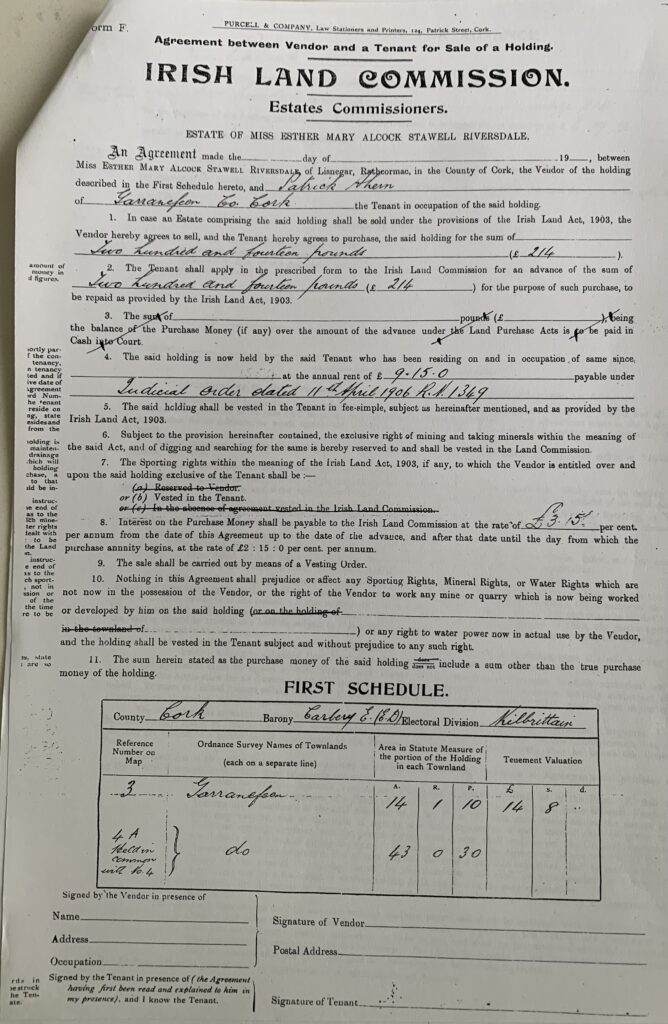 orm F.
PURCELL & COMPANY, Law Stationers and Printers, 124, Patrick Street, Cork.
Agreement between Vendor and a Tenant for Sale of a Holding.
IRISH LAND COMMISSION.
Estates Commissioners.
ESTATE OF MISS ESTHER MARY ALCOCK STAWELL RIVERSDALE.
An Agreement made the day of 19 , between
Miss ESTHER MARY ALCOCK STAWELL RIVERSDALE, of Lisnegar, Rathcormac, in the County of Cork, the Vendor of the holding
described in the First Schedule hereto, and Patrick Ahern
of Garranefeen Co. Cork the Tenant in occupation of the said holding.
1. In case an Estate comprising the said holding shall be sold under the provisions of the Irish Land Act, 1903, the
Vendor hereby agrees to sell, and the Tenant hereby agrees to purchase, the said holding for the sum of
Two hundred and fourteen pounds (£ 214 ).
amount of
money in
d figures.
2. The Tenant shall apply in the prescribed form to the Irish Land Commission for an advance of the sum of
Two hundred and fourteen pounds (£ 214 ) for the purpose of such purchase, to
be repaid as provided by the Irish Land Act, 1903.
3. The sum of pounds (£ ), being
the balance of the Purchase Money (if any) over the amount of the advance under the Land Purchase Acts is to be paid in
Cash into Court.
4. The said holding is now held by the said Tenant who has been residing on and in occupation of same since,
at the annual rent of £ 9-15-0 payable under
Judicial Order dated 11th April 1906 R.N. 1349
5. The said holding shall be vested in the Tenant in fee-simple, subject as hereinafter mentioned, and as provided by the
Irish Land Act, 1903.
6. Subject to the provision hereinafter contained, the exclusive right of mining and taking minerals within the meaning of
the said Act, and of digging and searching for the same is hereby reserved to and shall be vested in the Land Commission.
7. The Sporting rights within the meaning of the Irish Land Act, 1903, if any, to which the Vendor is entitled over and
upon the said holding exclusive of the Tenant shall be :—
(a) Reserved to Vendor.
or (b) Vested in the Tenant.
or (c) In the absence of agreement vested in the Irish Land Commission.
8. Interest on the Purchase Money shall be payable to the Irish Land Commission at the rate of £3. 15/- per cent.
per annum from the date of this Agreement up to the date of the advance, and after that date until the day from which the
purchase annuity begins, at the rate of £2 : 15 : 0 per cent. per annum.
9. The sale shall be carried out by means of a Vesting Order.
10. Nothing in this Agreement shall prejudice or affect any Sporting Rights, Mineral Rights, or Water Rights which are
not now in the possession of the Vendor, or the right of the Vendor to work any mine or quarry which is now being worked
or developed by him on the said holding (or on the holding of
in the townland of ) or any right to water power now in actual use by the Vendor,
and the holding shall be vested in the Tenant subject and without prejudice to any such right.
11. The sum herein stated as the purchase money of the said holding does not include a sum other than the true purchase
money of the holding.
FIRST SCHEDULE.
County Cork Barony Carbery E. (E.D) Electoral Division Kilbrittain
Reference Number on Map
Ordnance Survey Names of Townlands (each on a separate line)
Area in Statute Measure of the portion of the Holding in each Townland
Tenement Valuation
A. R. P. £ s. d.
3 Garranefeen 14 1 10 14 8 ..
4 A
Held in
common
with No. 4
do 43 0 30
Signed by the Vendor in presence of
Name
Address
Occupation
Signature of Vendor
Postal Address
Signed by the Tenant in presence of (the Agreement
having first been read and explained to him in
my presence), and I know the Tenant.
Signature of Tenant